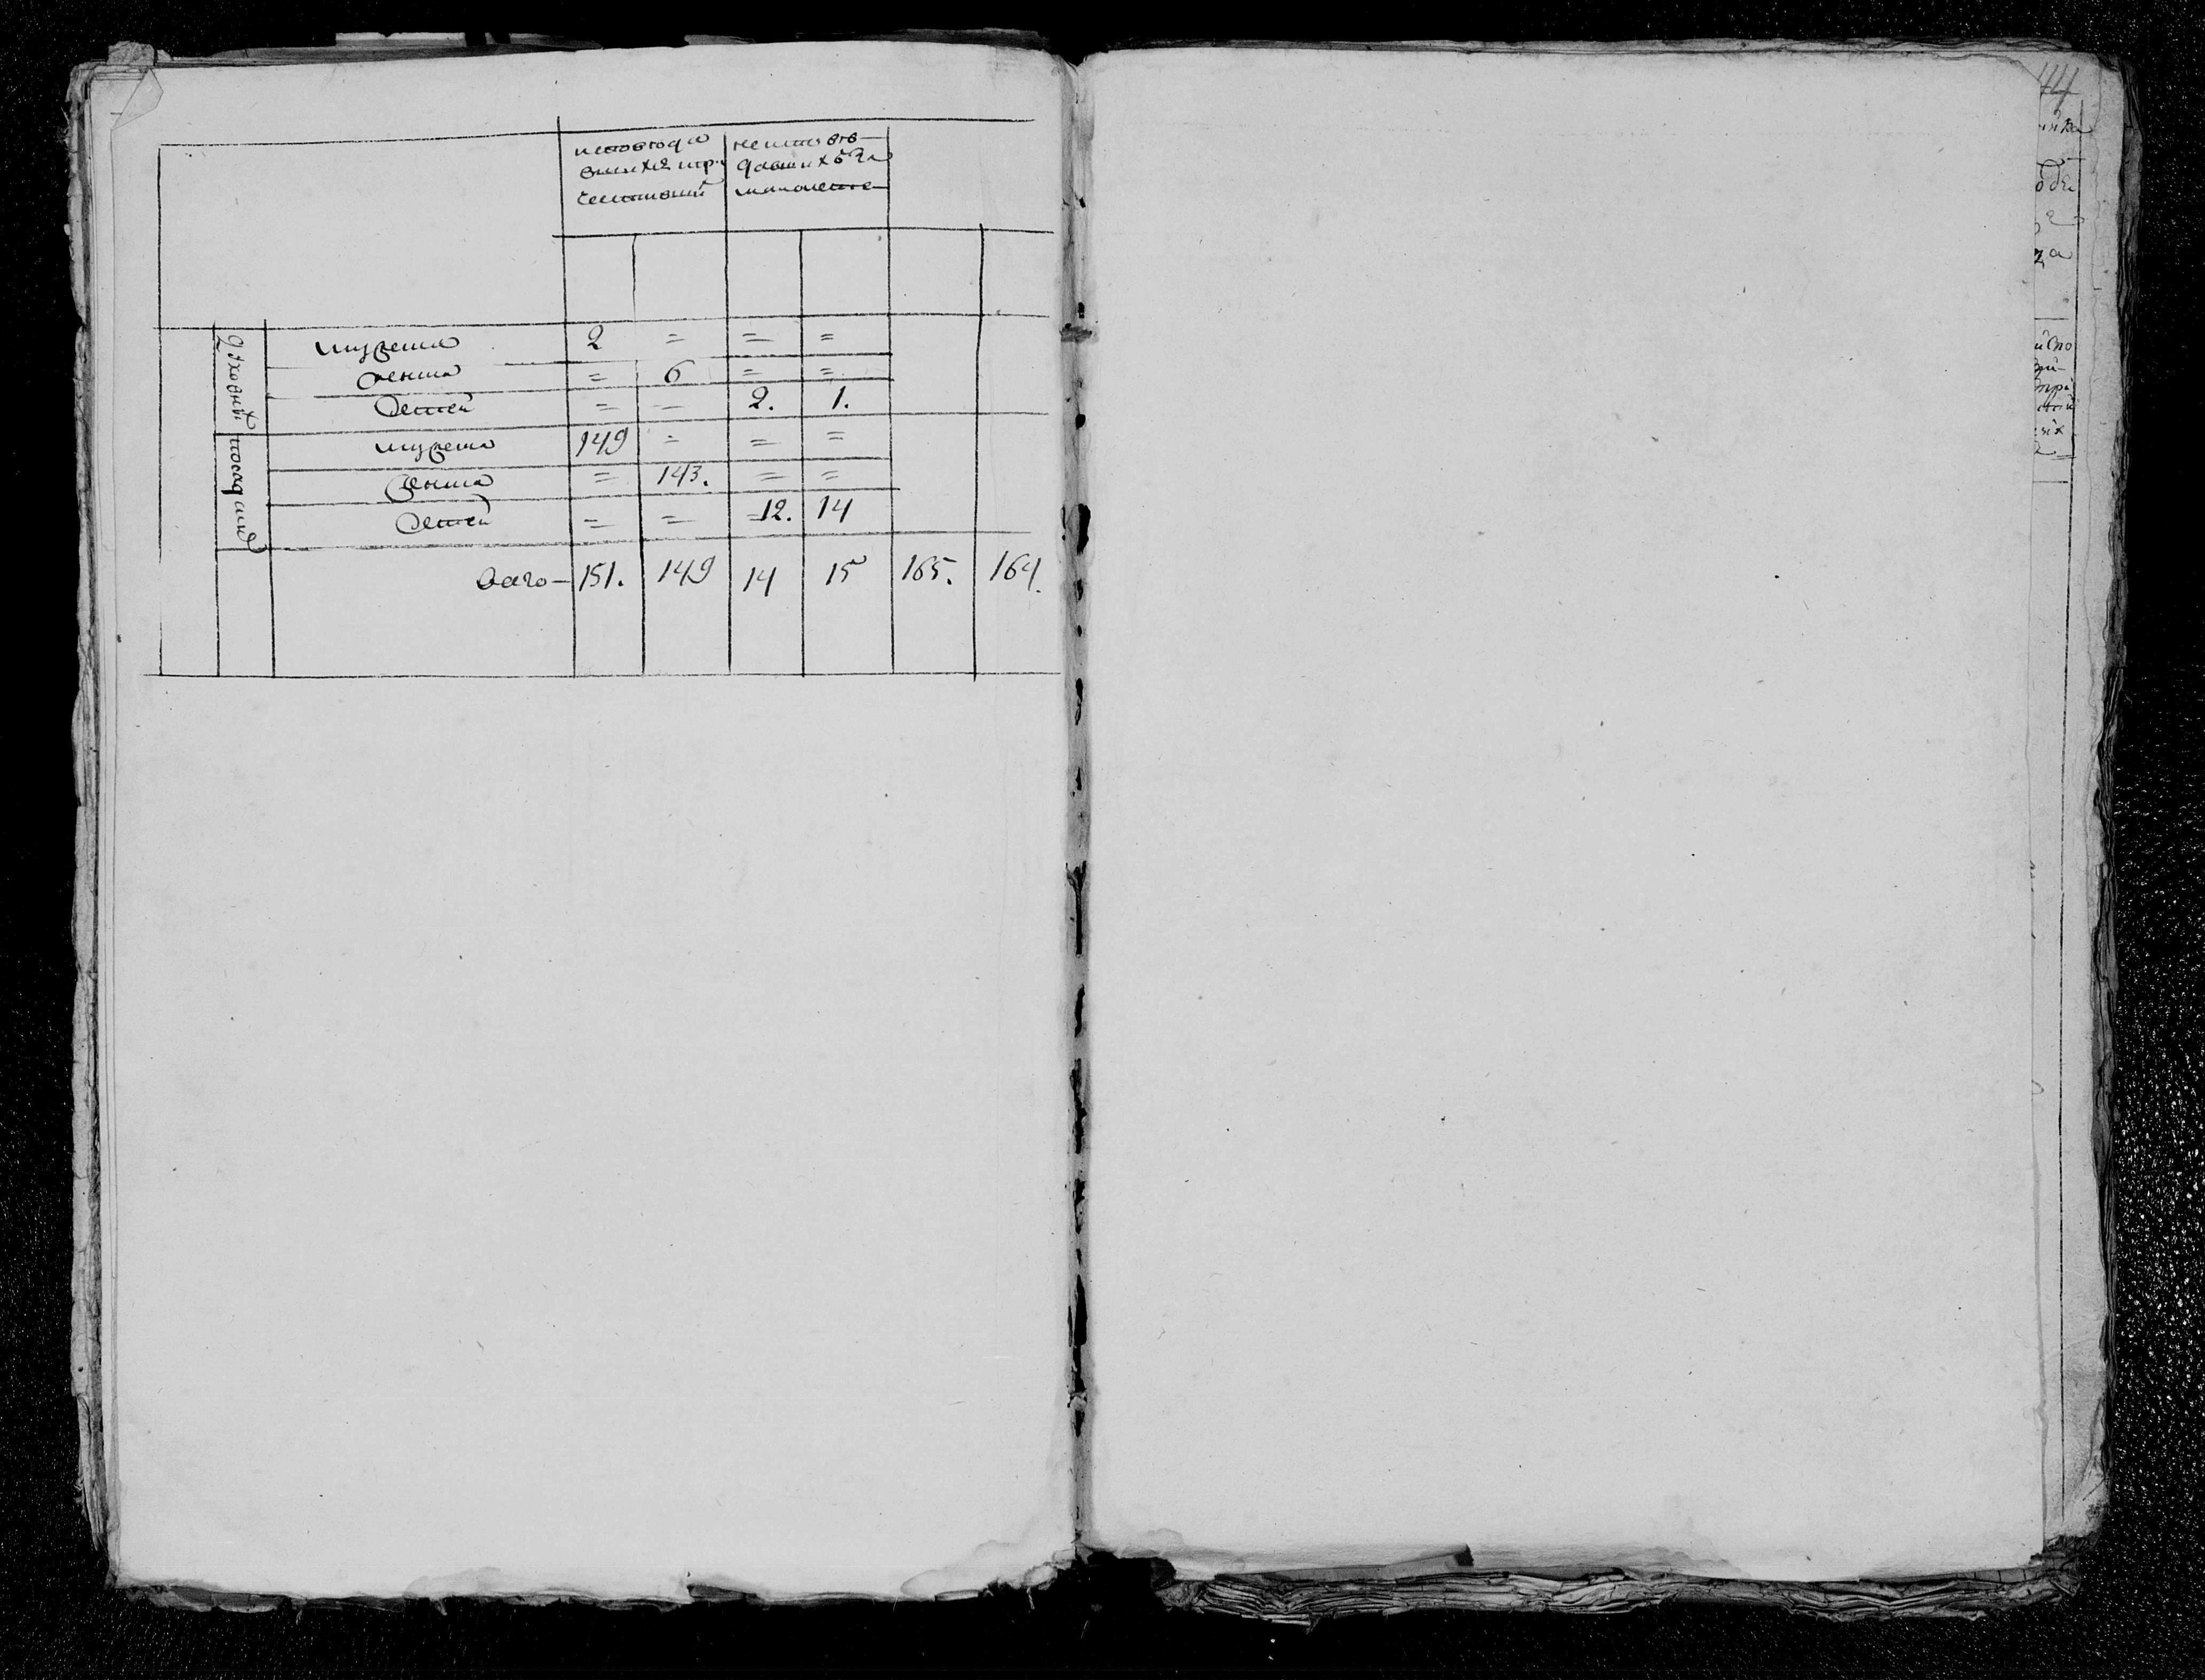 исповѣда
вшихъ и пр
честившихъ
неисповѣ
давшихъ за
малолетст
духовныхъ
мужеска 2 = = =
женска = 6 = =
детей = = 2. 1.
посадскихъ
мужеска 149 = = =
женска = 143. = =
детей = = 12. 14
Всего 151. 149 14 15 165. 164.
44